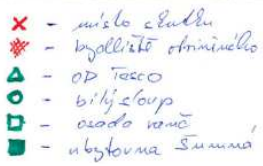 - místo skutku
- bydliště obviněného
- OD Tesco
- bílý sloup
- osada
- ubytovna Šumná